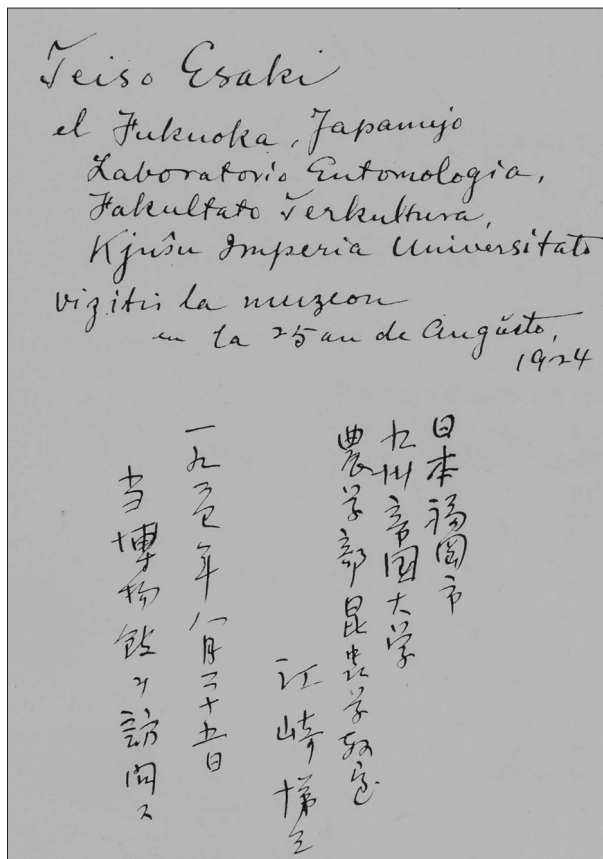 Teiso Esaki
el Fukuoka, Japanujo
Laboratorio Entomologia,
Fakultato Terkultura,
Kjuŝu Imperia Universitato
vizitis la muzeon
en la 25an de Augŭsto,
1924
日本福岡市
九州帝国大学
農学部昆虫学教室
江崎悌三
一九二四年八月二十五日
当博物館ヲ訪問ス